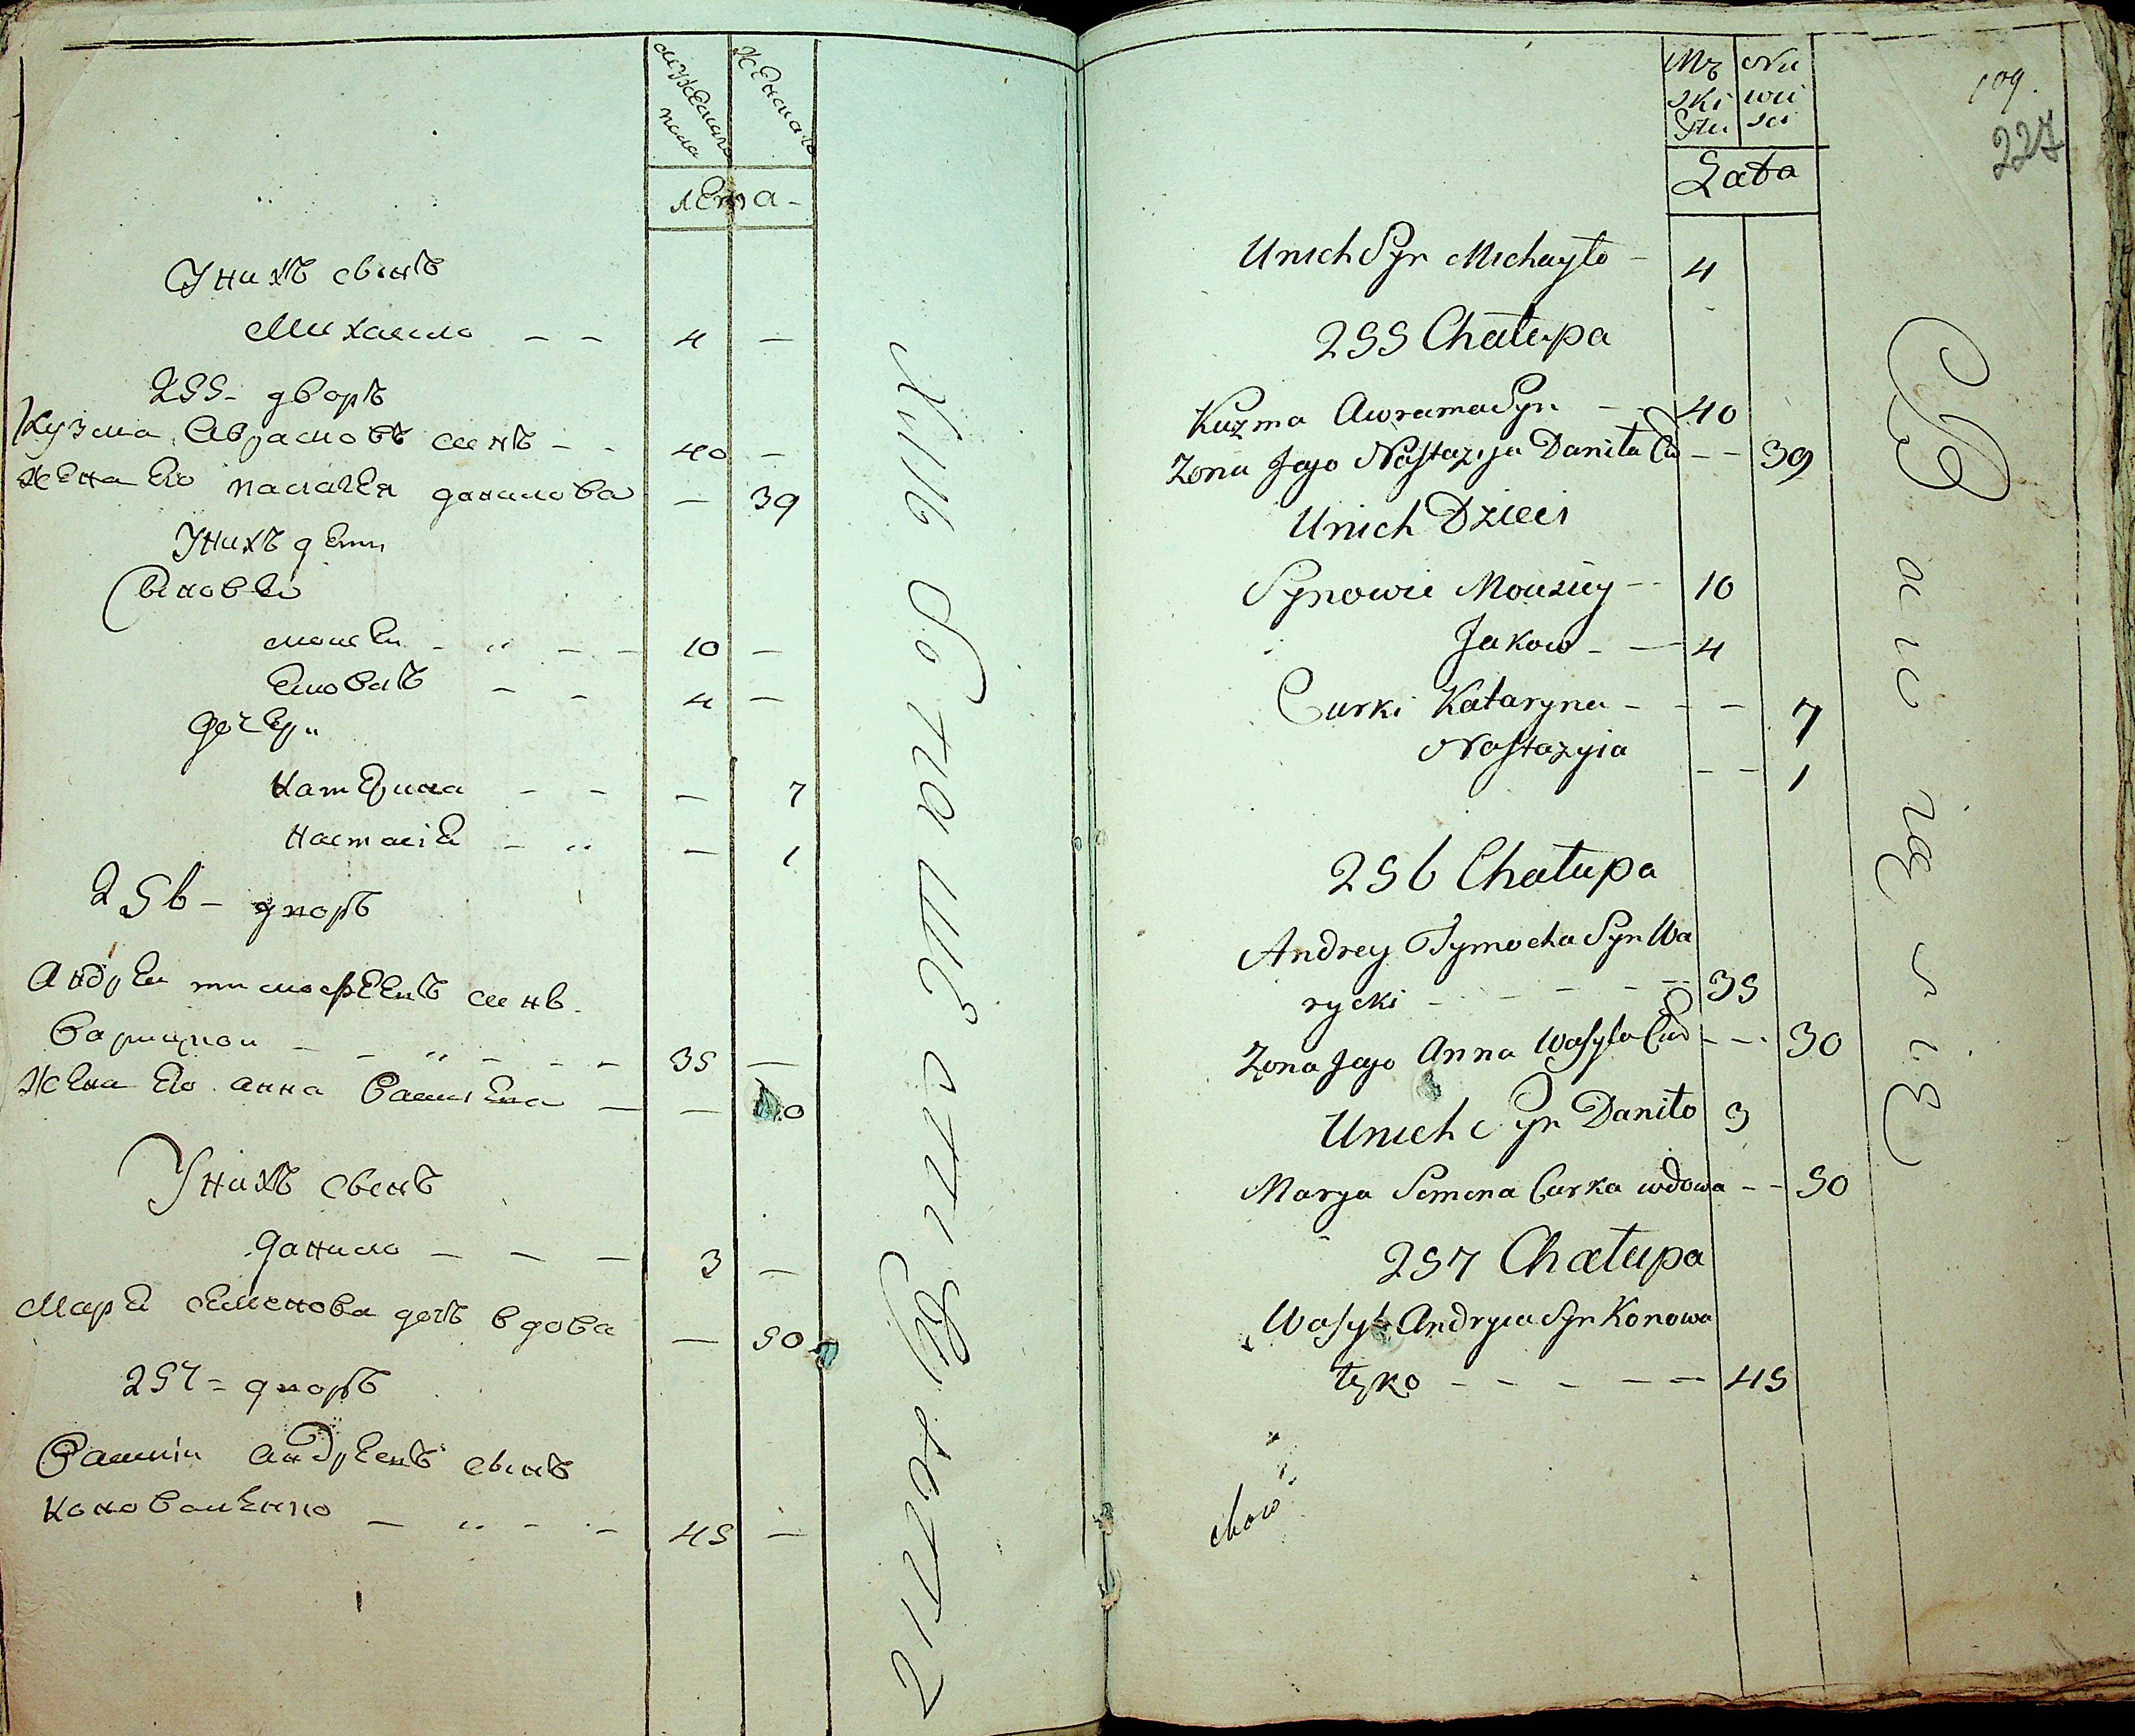 мужеска пола
женска
лета
У них сынъ
Михаило - - 4 -
255 - дворъ
Кузма Аврамовъ сынъ - - 40 -
жена Ево настасея данилова - 39
У нихъ дети
Сыновья
моисеи - - - 10 -
дочери
катерина - - - 7
настасiя - - - 1
256 - дворъ
Андреи тимофеевъ сынъ
варицкои - - - 35 -
жена Ево анна василева - -
У нихъ сынъ
данило - - - 3 -
Маря семенова дочь вдова - 50
257 = дворъ
Василiи андреевъ сынъ
коноваленко - - - 45 -
Mę Nie
ski wie
Płci sci
Lata
109.
227
Unich Syn Michayło - 4
255 Chałupa
Kuzma Awrama Syn - - 40
Zona Jego Nastazya Daniła Cu - - 39
Unich Dzieci
Synowie Mouziey - 10
Jakow - - 4
Curki Kataryna - - - 7
Nastazyia - - 1
256 Chałupa
Andrey Tymocha Syn Wa
rycki - - - - - 35
Zona Jego Anna Wasyla Cur - - - 30
Unich Syn Daniło 3
Marya Semena Curka wdowa - - 50
257 Chałupa
Wasyl Andryia Syn Konowa
łęko - - - - - 45